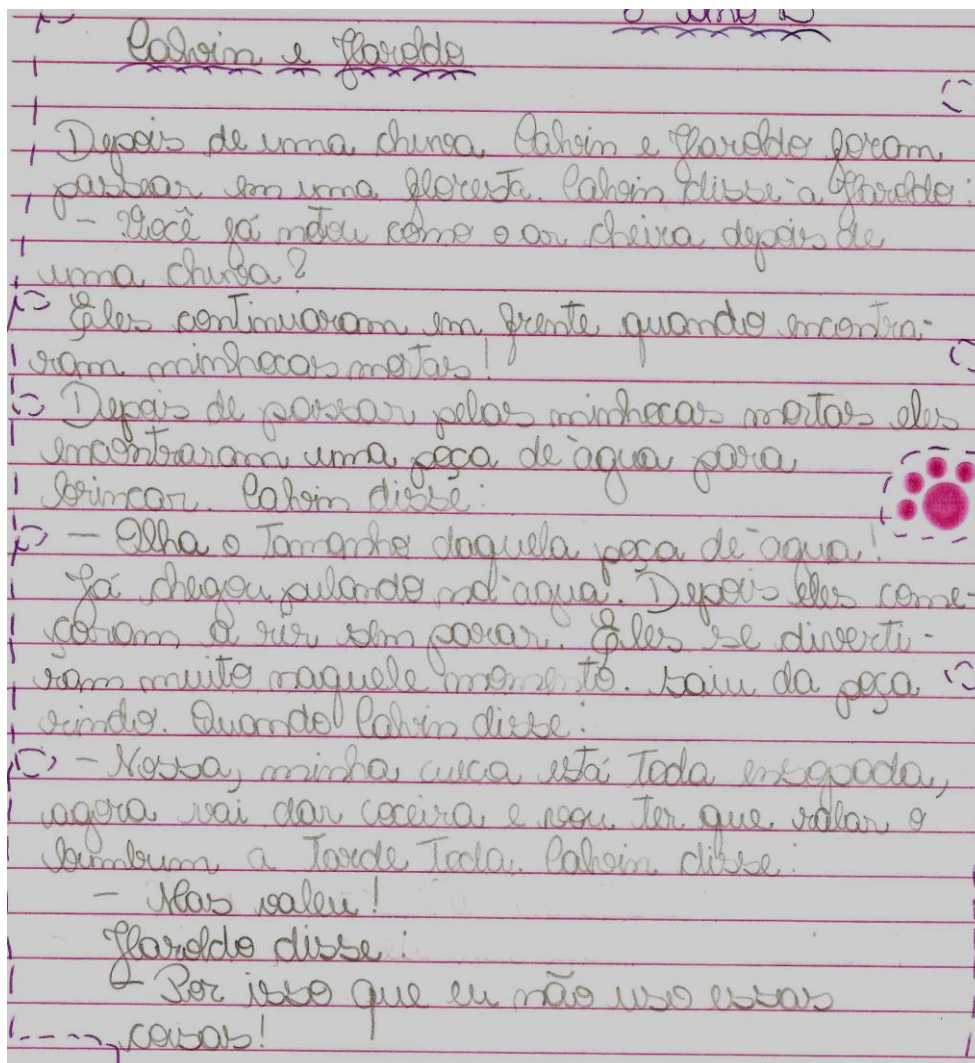 Calvin e Haroldo
Depois de uma chuva Calvin e Haroldo foram
passear em uma floresta. Calvin disse a Haroldo:
- Você já notou como o ar cheira depois de
uma chuva?
Eles continuaram em frente quando encontra-
ram minhocas mortas!
Depois de passar pelas minhocas mortas eles
encontraram uma poça de água para
brincar. Calvin disse:
- Olha o tamanho daquela poça de água!
Já chegou pulando na água. Depois eles come-
çaram a rir sem parar. Eles se diverti-
ram muito naquele momento. saiu da poça
rindo. Quando Calvin disse:
- Nossa, minha cueca está toda ensopada,
agora vai dar coceira e vou ter que ralar o
bumbum a tarde toda. Calvin disse:
- Mas valeu!
Haroldo disse:
- Por isso que eu não uso essas
coisas!